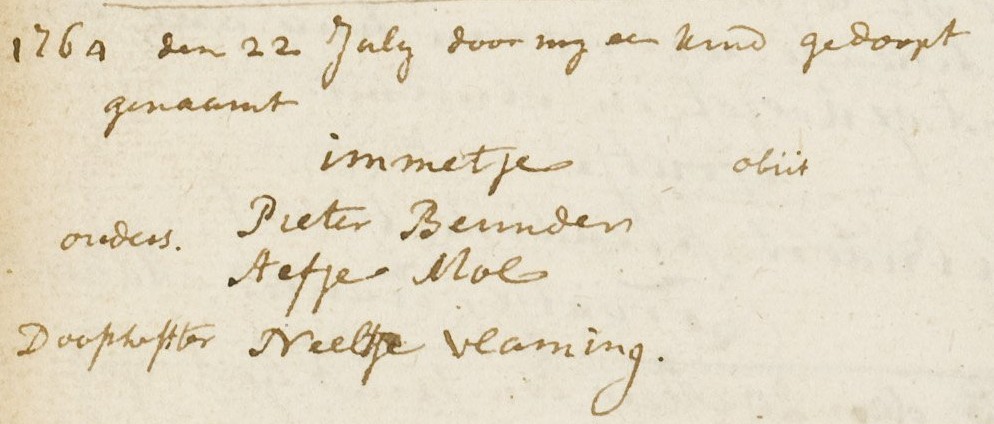 1764 den 22 July door my een kind gedoopt
genaamt
immetje obiit
ouders. Pieter Beunder
Aefje Mol
Doophefster Neeltje vlaming.